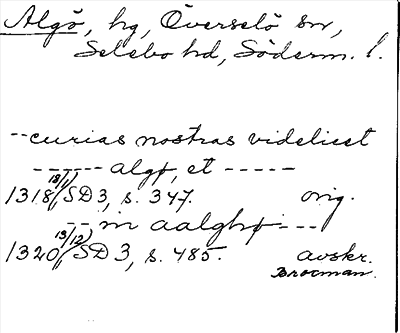 Algö, hg, Överselö sn,
Selebo hd, Söderm. l.
--curias nostras videlicet
------algø, et -----
1318 18/1 SD 3, s. 347. orig.
--in aalghø---
1320 13/12 SD 3, s. 485. avskr.
Brocman.